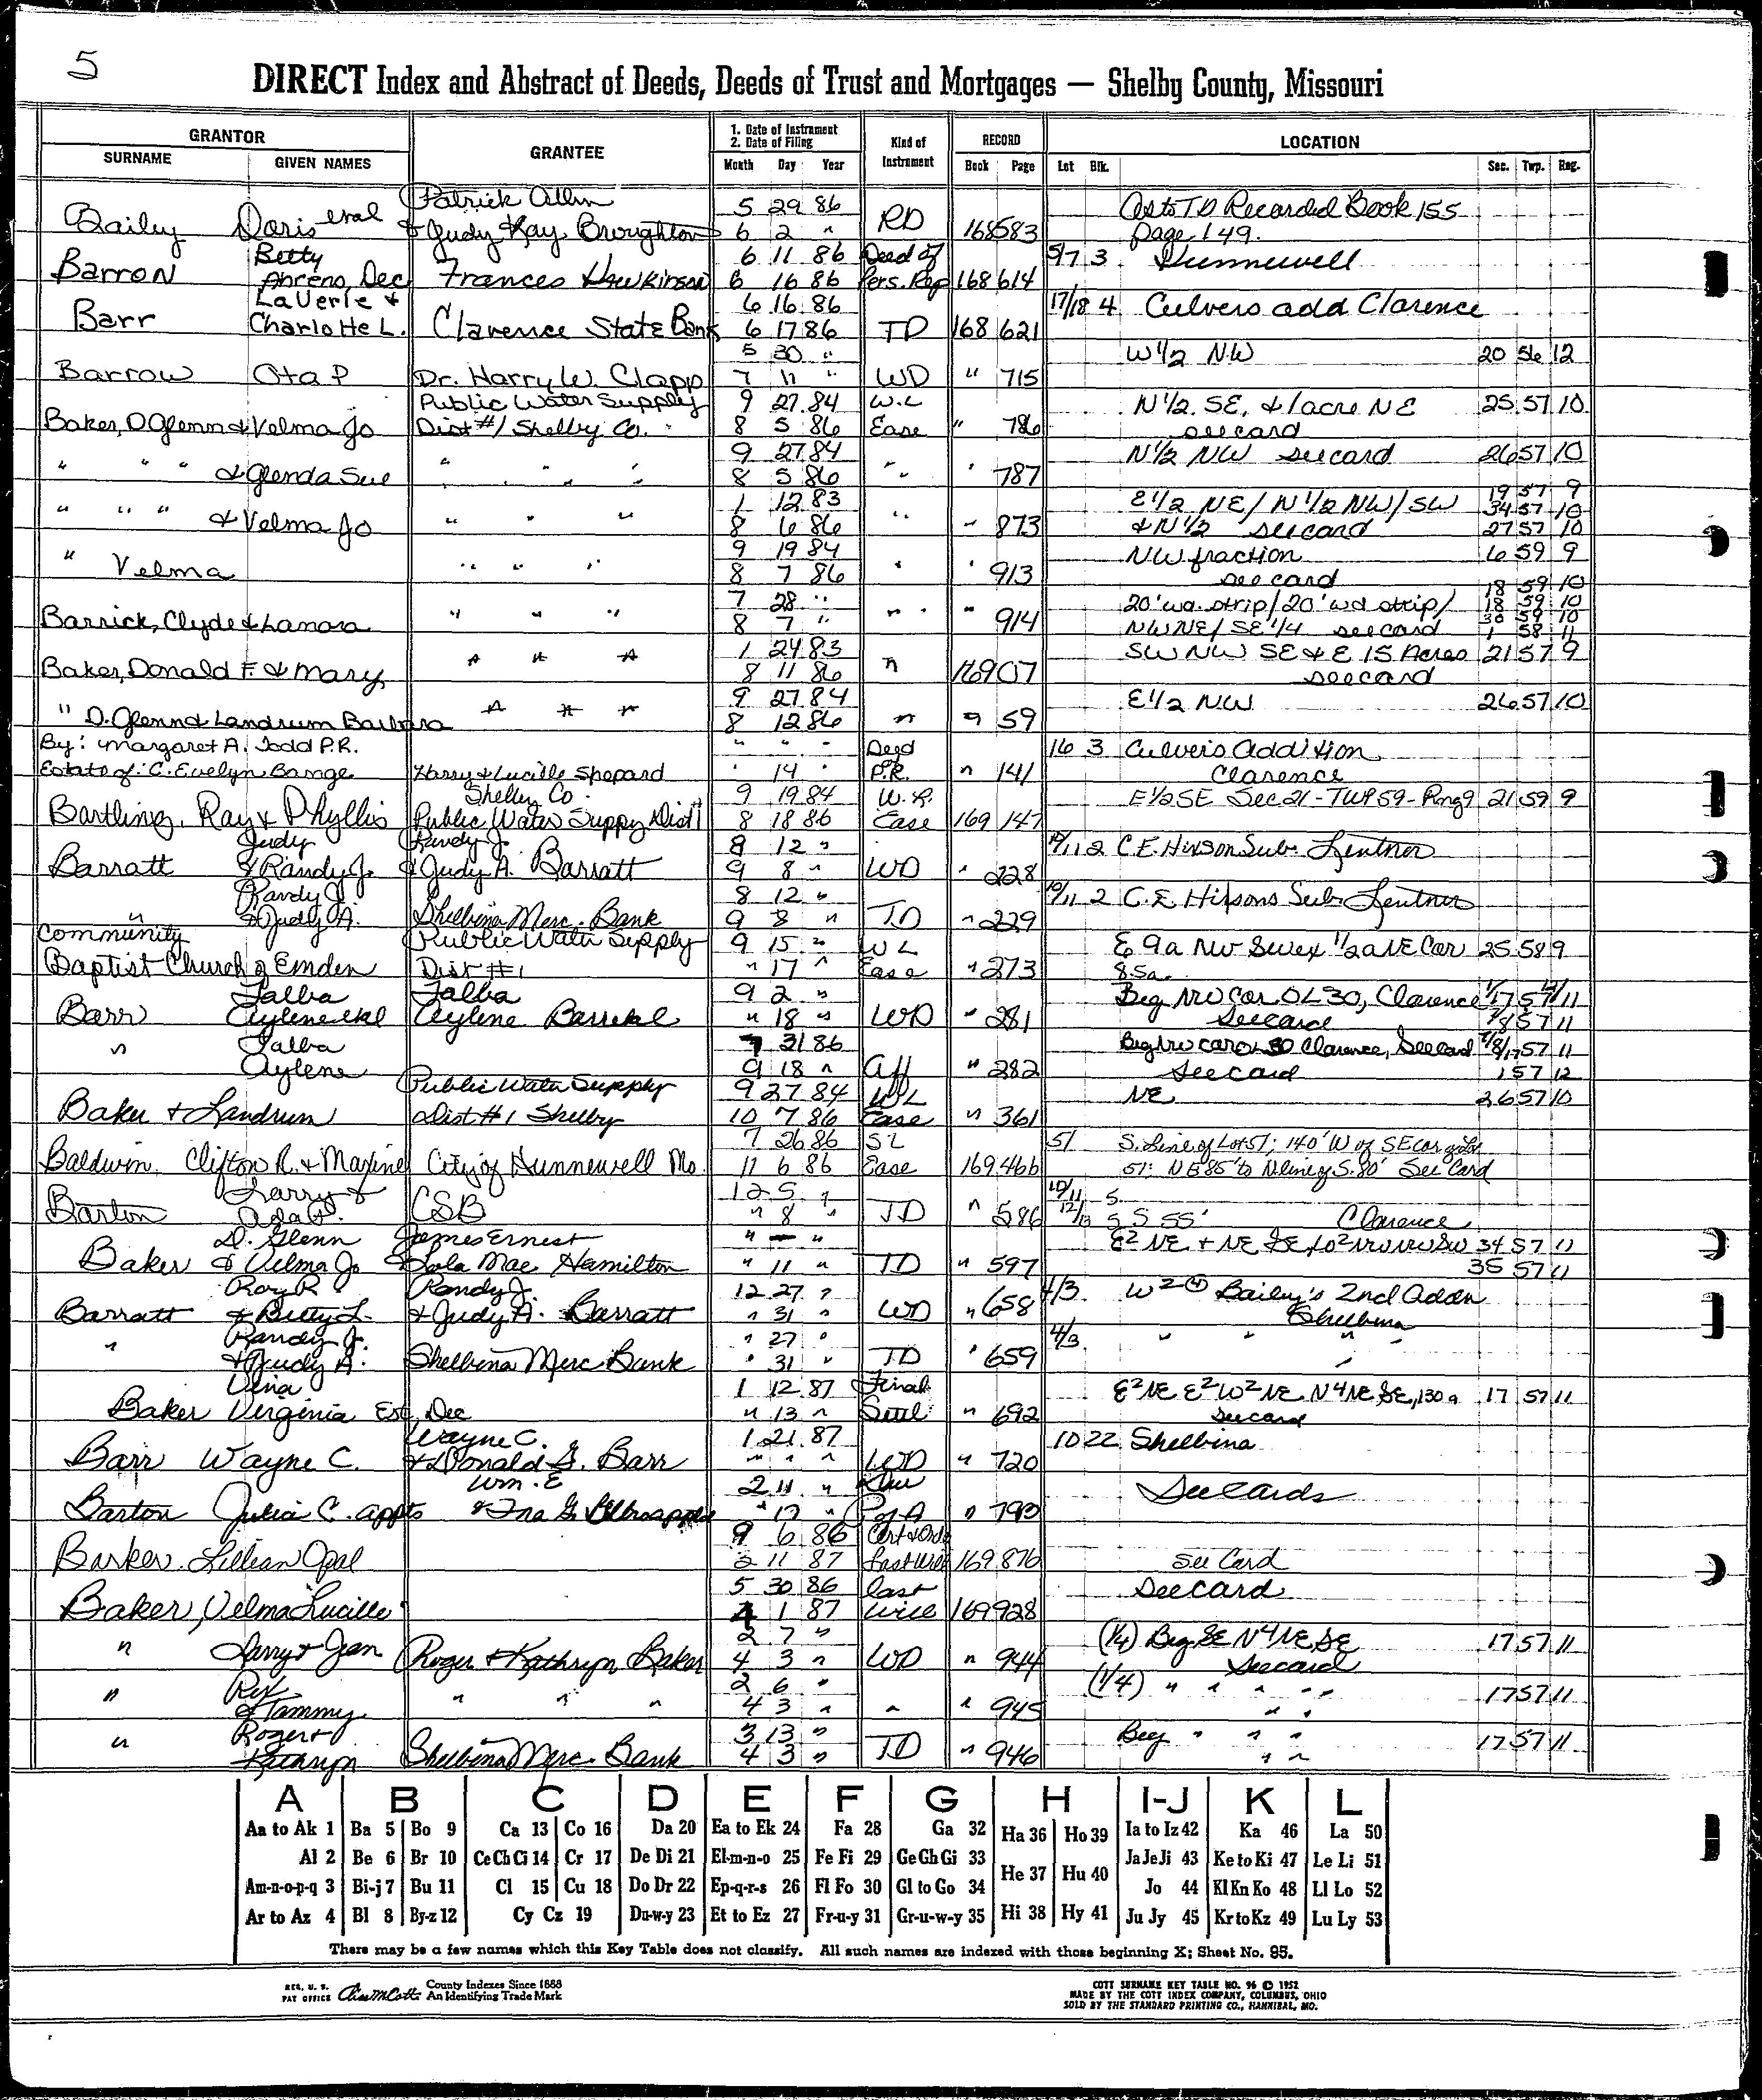 5
DIRECT Index and Abstract of Deeds, Deeds of Trust and Mortgages — Shelby County, Missouri
GRANTOR GRANTEE 1. Date of Instrument 2. Date of Filing Kind of Instrument RECORD LOCATION
SURNAME GIVEN NAMES Month Day Year Book Page Lot Blk. Sec. Twp. Rng.
Patrick Allen 5 29 86 As to TD Recorded Book 155
Bailey Doris & Judy Kay Broughton 6 2 " RD 168 583 page 149.
Betty 6 11 86 Deed of 3 Hunnewell
Barron Ahreno, Dec Frances Hawkinson 6 16 86 Pers. Rep 168 614
LaVerle & 6 16 86 17/18 4 Culvers add Clarence
Barr Charlotte L. Clarence State Bank 6 17 86 TD 168 621
5 30 " W 1/2 NW 20 56 12
Barrow Ota P Dr. Harry W. Clapp 7 11 " WD " 715
Public Water Supply 9 27 84 W.L N 1/2 SE, & 1 acre NE 25 57 10
Baker, D Glenn & Velma Jo Dist #1 Shelby Co. 8 5 86 Ease " 786 see card
9 27 84 N 1/2 NW see card 26 57 10
" " " & Glenda Sue " " " 8 5 86 " " 787
1 12 83 E 1/2 NE / N 1/2 NW / SW 19 57 9
34 57 10
" " " & Velma Jo " " " 8 6 86 " " 873 & N 1/2 see card 27 57 10
9 19 84 NW fraction 6 59 9
" Velma " " " 8 7 86 " " 913 see card
18 59 10
7 28 " 20' wd. strip / 20' wd strip / 18 59 10
30 59 10
Barrick, Clyde & Lanora " " " 8 7 " " " 914 NW NE / SE 1/4 see card 1 58 11
1 24 83 SW NW SE & E 15 Acres 21 57 9
Baker, Donald F. & Mary " " " 8 11 86 " 169 07 see card
9 27 84 E 1/2 NW 26 57 10
" D. Glenn & Landrum Barbara " " " 8 12 86 " " 59
By: Margaret A. Todd P.R. " " " Deed 16 3 Culvers Addition
Estate of: C. Evelyn Bange Harry & Lucille Shepard " 14 " P.R. " 141 Clarence
Shelby Co. 9 19 84 W.L. E 1/2 SE Sec 21 - TWP 59 - Rng 9 21 59 9
Bartling, Ray & Phyllis Public Water Suppy Dist 1 8 18 86 Ease 169 147
Judy Randy J. 8 12 " 10/11 2 C.E. Hirson Sub. Lentner
Barratt & Randy J. & Judy A. Barratt 9 8 " WD " 228
Randy J. 8 12 " 10/11 2 C.E. Hirsons Sub. Lentner
" & Judy A. Shelbina Merc. Bank 9 8 " TD " 229
Community Public Water Supply 9 15 " W L E 9a NW SW ex 1/2 a NE Cor 25 58 9
Baptist Church of Emden Dist #1 " 17 " Ease " 273 8.5a.
Talba Talba 9 2 " Beg NW Cor OL 30, Clarence
Barr Aylene Aylene Barr " 18 " WD " 281 see card
" Talba 7 31 86 Beg NW Cor OL 30 Clarence, See card
Aylene 9 18 " Aff " 282 see card 1 57 12
Public Water Supply 9 27 84 WL NE 26 57 10
Baker & Landrum Dist #1 Shelby 10 7 86 Ease " 361
7 26 86 SL 51 S. Line of Lot 51; 140' W of SE Cor of Lot
Baldwin Clifton R. & Maxine City of Hunnewell Mo. 11 6 86 Ease 169 466 51: N E 85' to N line of S. 80' See Card
Larry & 12 5 " 10/11 5
Barton Ada P. CSB " 8 " TD " 586 12/13 5 S 55' Clarence
D. Glenn James Ernest " — " E2 NE + NE SE, 34 57 11
Baker & Velma Jo & Lola Mae Hamilton " 11 " TD " 597 35 57 11
Roy R Randy J. 12 27 " 4/3 W2 (4) Bailey's 2nd Addn
Barratt & Betty L. & Judy A. Barratt " 31 " WD " 658 Shelbina
" Randy J. " 27 " 4/3 " " " "
& Judy A. Shelbina Merc Bank " 31 " TD " 659 "
1 12 87 Final E2 NE E2 W2 NE N4 NE SE, 130 a 17 57 11
Baker Virginia Est, Dec " 13 " Settl " 692 see card
Wayne C. 1 21 87 10 22 Shelbina
Barr Wayne C. & Donald G. Barr " " " WD " 720
Wm. E 2 11 " See Cards
Barton Julia C. appts & Ina G. " 17 " P of A " 793
9 6 86 Cert & Ord
Barker Lillian Opal 2 11 87 Last Will 169 876 See Card
5 30 86 last See card
Baker, Velma Lucille 4 1 87 will 169 928
2 7 " (1/4) Beg SE N4 NE, SE 17 57 11
" Larry & Jean Roger & Kathryn Baker 4 3 " WD " 944 See card
Rex 2 6 " (1/4) " " " " 17 57 11
" & Tammy " " " 4 3 " " " 945 " "
Roger & 3 13 " Beg " " " 17 57 11
" Kathryn Shelbina Merc. Bank 4 3 " TD " 946 " "
A B C D E F G H I-J K L
Aa to Ak 1 Ba 5 Bo 9 Ca 13 Co 16 Da 20 Ea to Ek 24 Fa 28 Ga 32 Ha 36 Ho 39 Ia to Iz 42 Ka 46 La 50
Al 2 Be 6 Br 10 Ce Ch Ci 14 Cr 17 De Di 21 El-m-n-o 25 Fe Fi 29 Ge Gh Gi 33 He 37 Hu 40 Ja Je Ji 43 Ke to Ki 47 Le Li 51
Am-n-o-p-q 3 Bi-j 7 Bu 11 Cl 15 Cu 18 Do Dr 22 Ep-q-r-s 26 Fl Fo 30 Gl to Go 34 Jo 44 Kl Kn Ko 48 Ll Lo 52
Ar to Az 4 Bl 8 By-z 12 Cy Cz 19 Du-w-y 23 Et to Ez 27 Fr-u-y 31 Gr-u-w-y 35 Hi 38 Hy 41 Ju Jy 45 Kr to Kz 49 Lu Ly 53
There may be a few names which this Key Table does not classify. All such names are indexed with those beginning X; Sheet No. 95.
REG. U. S. PAT OFFICE County Indexes Since 1888 An Identifying Trade Mark
COTT SURNAME KEY TABLE NO. 96 © 1952
MADE BY THE COTT INDEX COMPANY, COLUMBUS, OHIO
SOLD BY THE STANDARD PRINTING CO., HANNIBAL, MO.